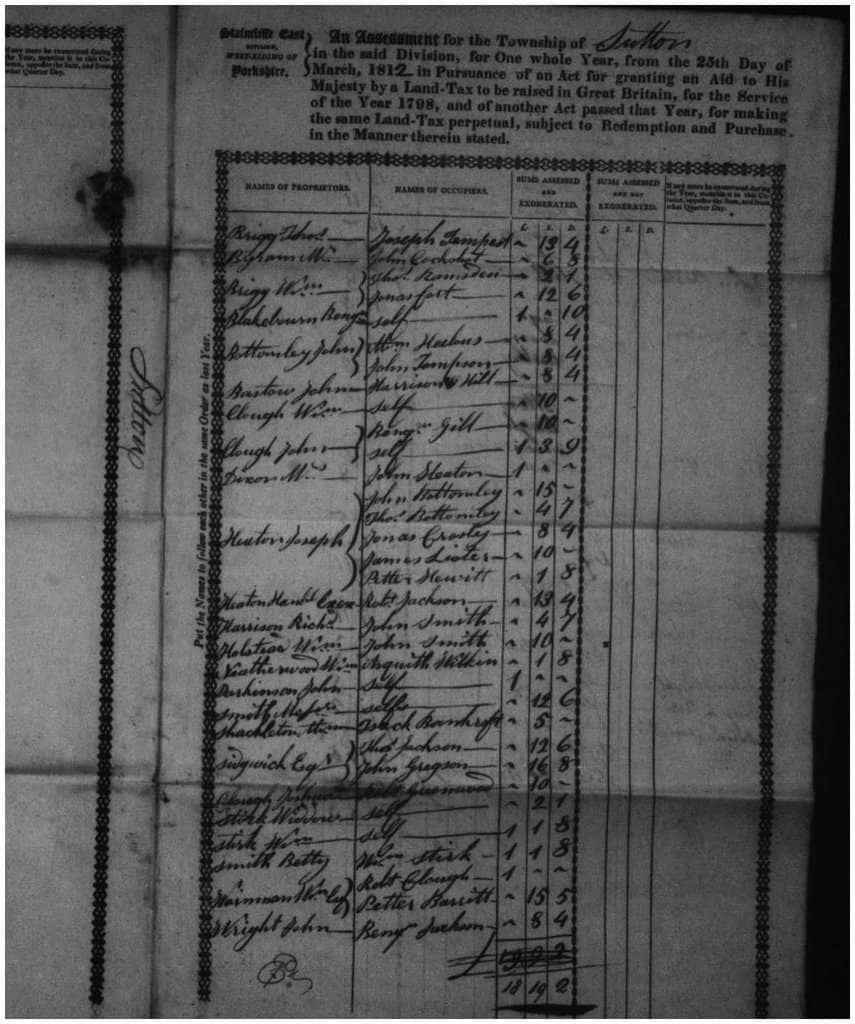 If any more be exonerated during
the Year, mention it in this Co-
lumn, opposite the Sum, and from
what Quarter Day.
Sutton
Staincliffe East
DIVISION,
WEST-RIDING OF
Yorkshire.
An Assessment for the Township of Sutton
in the said Division, for One whole Year, from the 25th Day of
March, 1812 in Pursuance of an Act for granting an Aid to His
Majesty by a Land-Tax to be raised in Great Britain, for the Service
of the Year 1798, and of another Act passed that Year, for making
the same Land-Tax perpetual, subject to Redemption and Purchase
in the Manner therein stated.
Put the Names to follow each other in the same Order as last Year.
NAMES OF PROPRIETORS. NAMES OF OCCUPIERS. SUMS ASSESSED AND EXONERATED. SUMS ASSESSED AND NOT EXONERATED. If any more be exonerated during the Year, mention it in this Column, opposite the Sum, and from what Quarter Day.
£. S. D. £. S. D.
Brigg Thos. Joseph Tempest " 13 4
John Cockshot " 6 8
Brigg Wm. Thos. Ramsden " 2 1
Jonas Fort " 12 6
Blakebourn Benjn. self 1 " 10
Bottomley John Wm. " 8 4
John Tempson " 8 4
Bastow John Harrison Hill " 8 4
Clough Wm. self " 10 "
Clough John Benjn. Gill " 10 "
self 1 3 9
Dixon Mrs. John Heaton 1 " "
Heaton Joseph John Bottomley " 15 "
Thos. Bottomley " 4 7
Jonas Crosley " 8 4
James Lister " 10 "
Petter Hewitt " 1 8
Heaton Exors Robt. Jackson " 13 4
Harrison Richd. John Smith " 4 7
Holstead Wm. John Smith " 10 "
Neatherwood Wm. Asquith Wilkin " 1 8
Parkinson John self 1 " "
Smith self " 12 6
Shackleton Wm. Isack Bankroft " 5 "
Sidgwich Esqr. Thos. Jackson " 12 6
John Gregson " 16 8
Clough Joshua Robt Greenwood " 10 "
Stirk Widdow self " 2 1
Stirk Wm. self 1 1 8
Smith Betty Wm. Stirk 1 1 8
Wainman Wm. Esq Robt Clough 1 " "
Petter Barritt " 15 5
Wright John Benjn. Jackson " 8 4
18 19 2